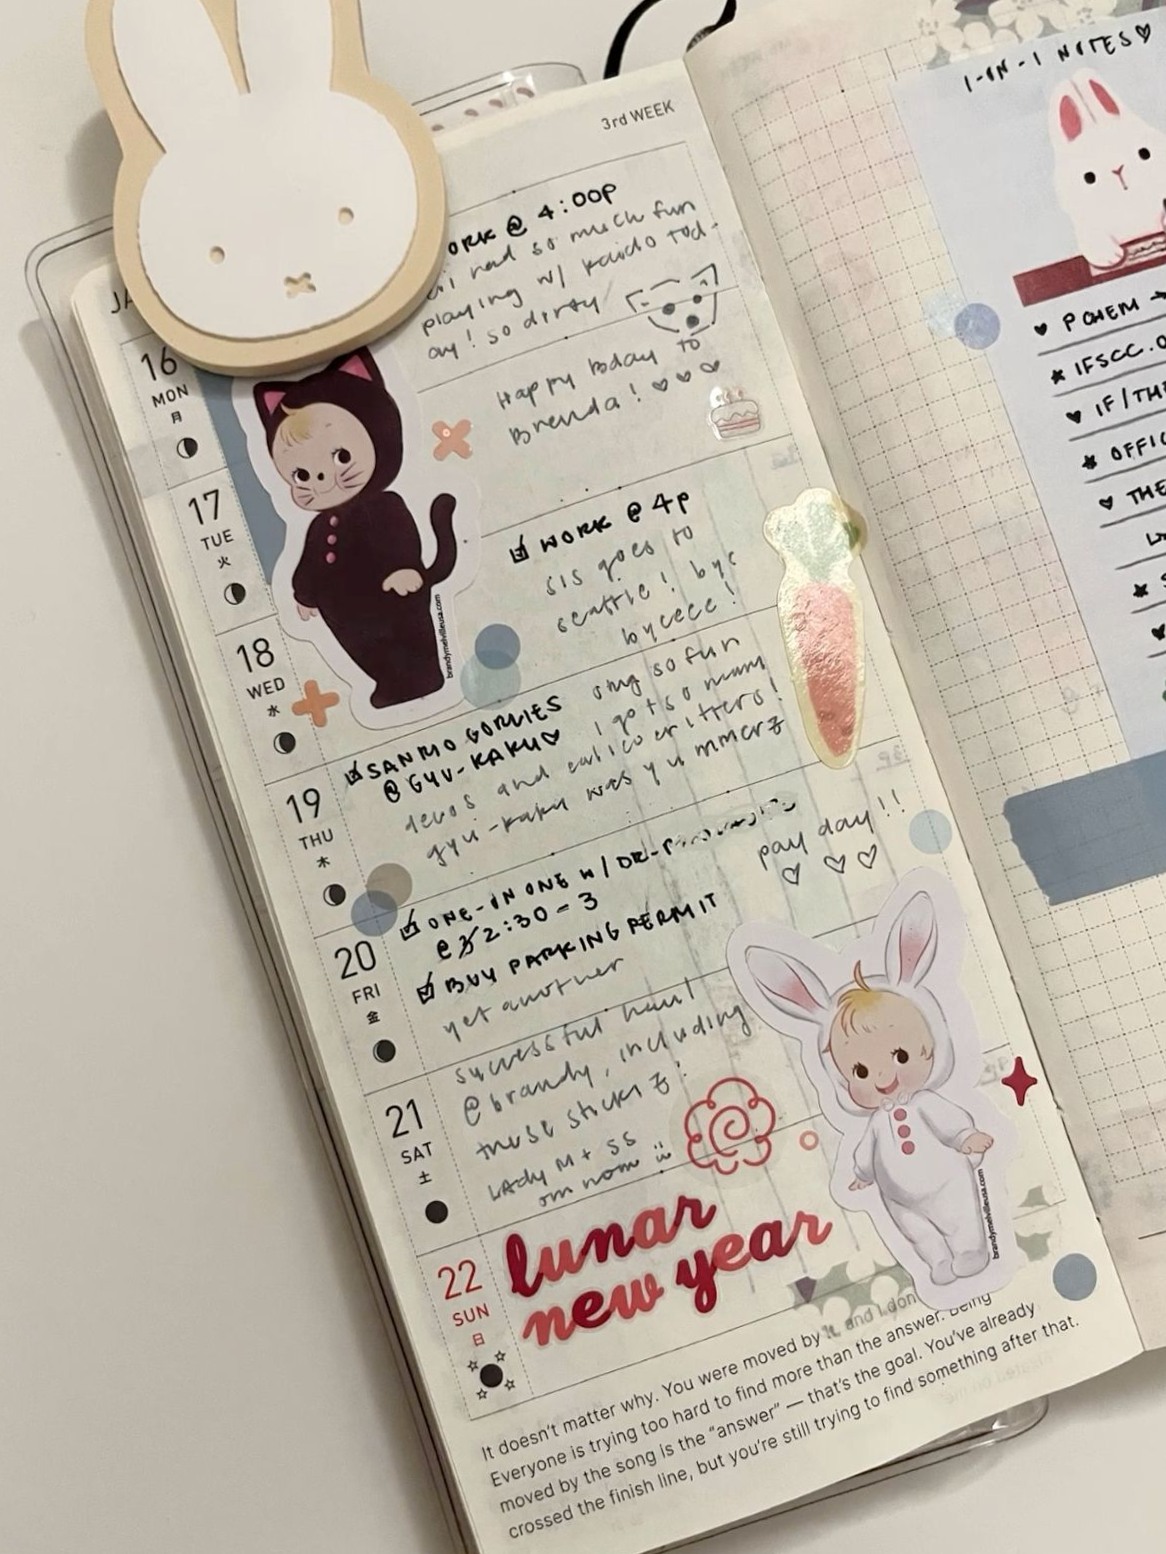 3rd WEEK
JA
16
MON
月
ORK @ 4:00P
had so much fun
playing w/ Kaido tod-
ay! so dirty
17
TUE
火
Happy bday to
Brenda! ♡♡♡
18
WED
水
☑ WORK @ 4P
sis goes to
seattle! bye
byeeee!
19
THU
木
☑ SANMO GORLIES
@ GYU-KAKU♡
omg so fun
i got so many
and calico critters!
gyu-kaku was yummerz
20
FRI
金
☑ ONE-ON ONE w/ DR.
@ 2:30-3
☑ BUY PARKING PERMIT
pay day!!
♡ ♡ ♡
21
SAT
土
yet another
successful haul
@ brandy, including
these stickerz!
LADY M + SS
om nom
22
SUN
日
lunar
new year
brandymelvilleusa.com
brandymelvilleusa.com
It doesn't matter why. You were moved by it, and I don
Everyone is trying too hard to find more than the answer. Being
moved by the song is the "answer" — that's the goal. You've already
crossed the finish line, but you're still trying to find something after that.
1-ON-1 NOTES♡
♥ PCHEM →
★ IFSCC.O
♥ IF/THE
★ OFFIC
♥ THE